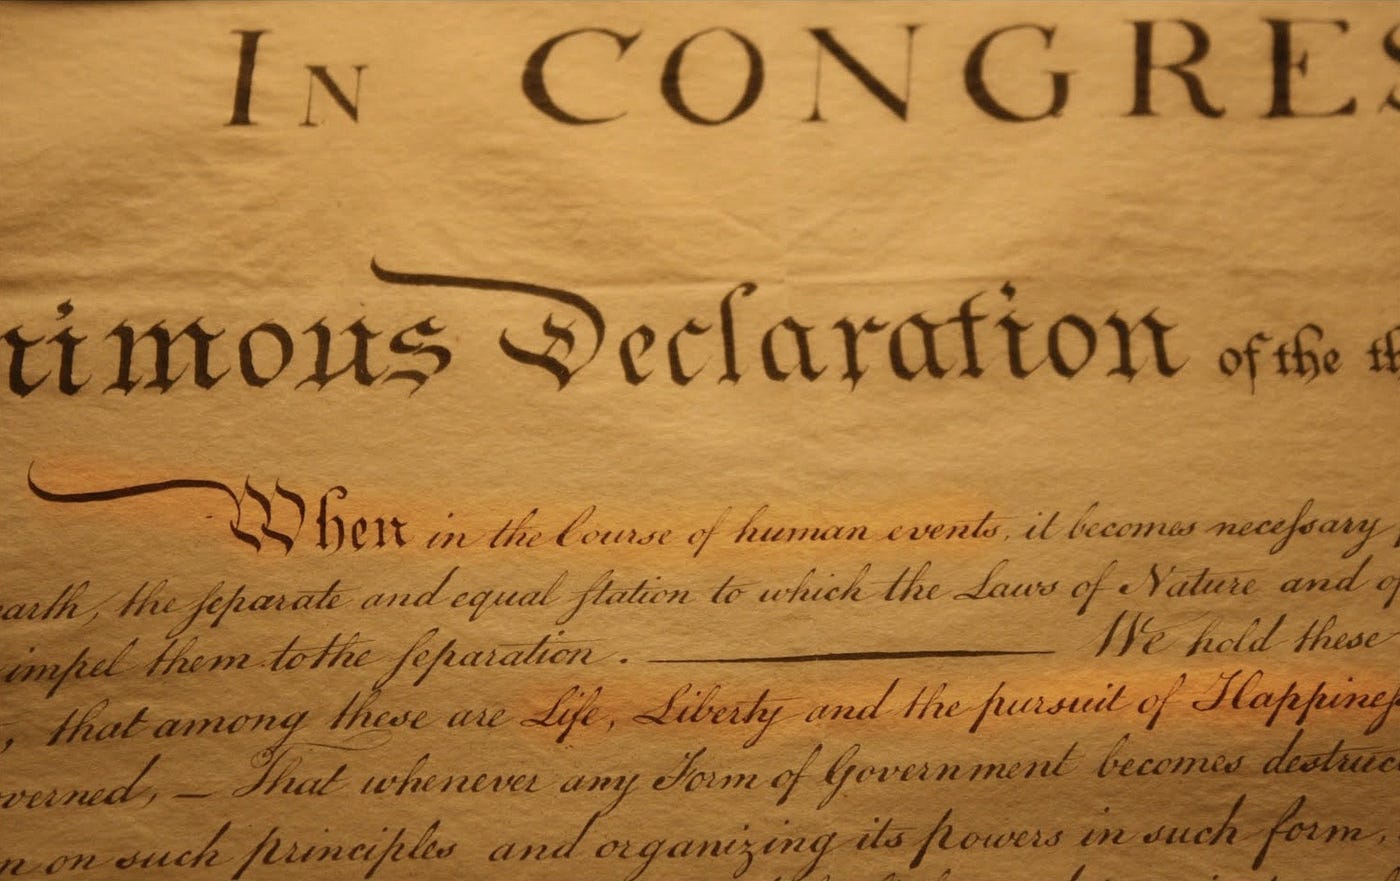 In CONGRES
nimous Declaration of the th
When in the Course of human events, it becomes neceſsary
earth, the ſeparate and equal ſtation to which the Laws of Nature and of
impel them to the ſeparation. ——— We hold these
, that among these are Life, Liberty and the pursuit of Happines
verned, — That whenever any Form of Government becomes destruc
n on such principles and organizing its powers in such form,